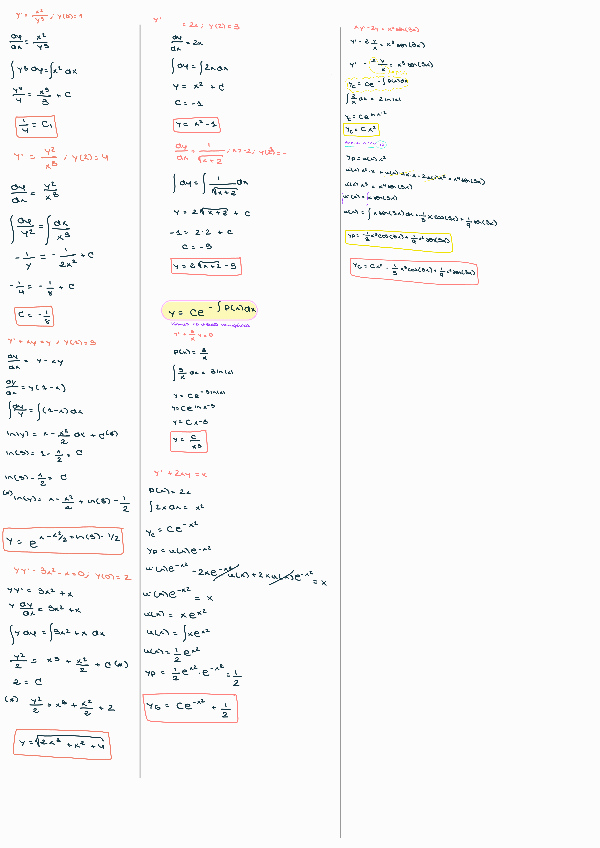 y' = x²/y³ ; y(0)=1
dy/dx = x²/y³
∫ y³ dy = ∫ x² dx
y⁴/4 = x³/3 + C
1/4 = C₁
y' = y²/x³ ; y(2)=4
dy/dx = y²/x³
∫ dy/y² = ∫ dx/x³
-1/y = -1/2x² + C
-1/4 = -1/8 + C
C = -1/8
y' + xy = y ; y(1)=3
dy/dx = y - xy
dy/dx = y(1-x)
∫ dy/y = ∫ (1-x) dx
ln(y) = x - x²/2 dx + C (*)
ln(3) = 1 - 1/2 + C
ln(3) - 1/2 = C
(*) ln(y) = x - x²/2 + ln(3) - 1/2
y = e^(x-x²/2+ln(3)-1/2)
yy' - 3x² - x = 0 ; y(0) = 2
yy' = 3x² + x
y dy/dx = 3x² + x
∫ y dy = ∫ 3x² + x dx
y²/2 = x³ + x²/2 + C (*)
2 = C
(*) y²/2 = x³ + x²/2 + 2
y = √2x³ + x² + 4
y' = 2x ; y(2) = 3
dy/dx = 2x
∫ dy = ∫ 2x dx
y = x² + C
C = -1
y = x² - 1
dy/dx = 1/√x+2 ; x>-2 ; y(2) = -
∫ dy = ∫ 1/√x+2 dx
y = 2√x+2 + C
-1 = 2·2 + C
C = -5
y = 2√x+2 - 5
y = Ce^(-∫P(x)dx)
y' + 3/x y = 0
P(x) = 3/x
∫ 3/x dx = 3 ln(x)
y = Ce^(-3ln(x))
y = Ce^(ln x^-3)
y = Cx^-3
y = C/x³
y' + 2xy = x
P(x) = 2x
∫ 2x dx = x²
yc = Ce^(-x²)
yp = u(x)e^(-x²)
u'(x)e^(-x²) - 2xe^(-x²)u(x) + 2xu(x)e^(-x²) = x
u'(x)e^(-x²) = x
u(x) = xe^(x²)
u(x) = ∫ xe^(x²)
u(x) = 1/2 e^(x²)
yp = 1/2 e^(x²) · e^(-x²) = 1/2
yG = Ce^(-x²) + 1/2
xy' - 2y = x⁴ sen(3x)
y' - 2 y/x = x³ sen(3x)
y' - 2y/x = x³ sen(3x)
yc = Ce^(-∫P(x)dx)
∫ 2/x dx = 2 ln(x)
yc = Ce^(ln x²)
yc = Cx²
yp = u(x) x²
u'(x) x³ = x⁴ sen(3x)
u'(x) = x sen(3x)
u(x) = ∫ x sen(3x) dx = -1/3 x cos(3x) + 1/9 sen(3x)
yp = -1/3 x³ cos(3x) + 1/9 x² sen(3x)
yG = Cx² - 1/3 x³ cos(3x) + 1/9 x² sen(3x)